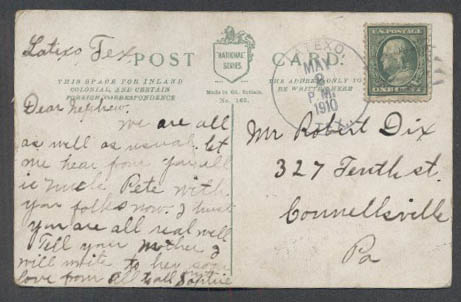 Latexo Tex
POST CARD.
"NATIONAL" SERIES
THIS SPACE FOR INLAND COLONIAL, AND CERTAIN FOREIGN CORRESPONDENCE
Made in Gt. Britain.
No. 165.
THE ADDRESS ONLY TO BE WRITTEN HERE
LATEXO
MAY
2
P M
1910
TEX.
U.S. POSTAGE
ONE CENT
Dear Nephew:
We are all
as well as usual. let
me hear from you all
is Uncle Pete with
your folks now. I trust
you are all real well
Tell your Mother I
will write to her soon
love from all to all
Mr Robert Dix
327 Tenth st.
Connellsville
Pa